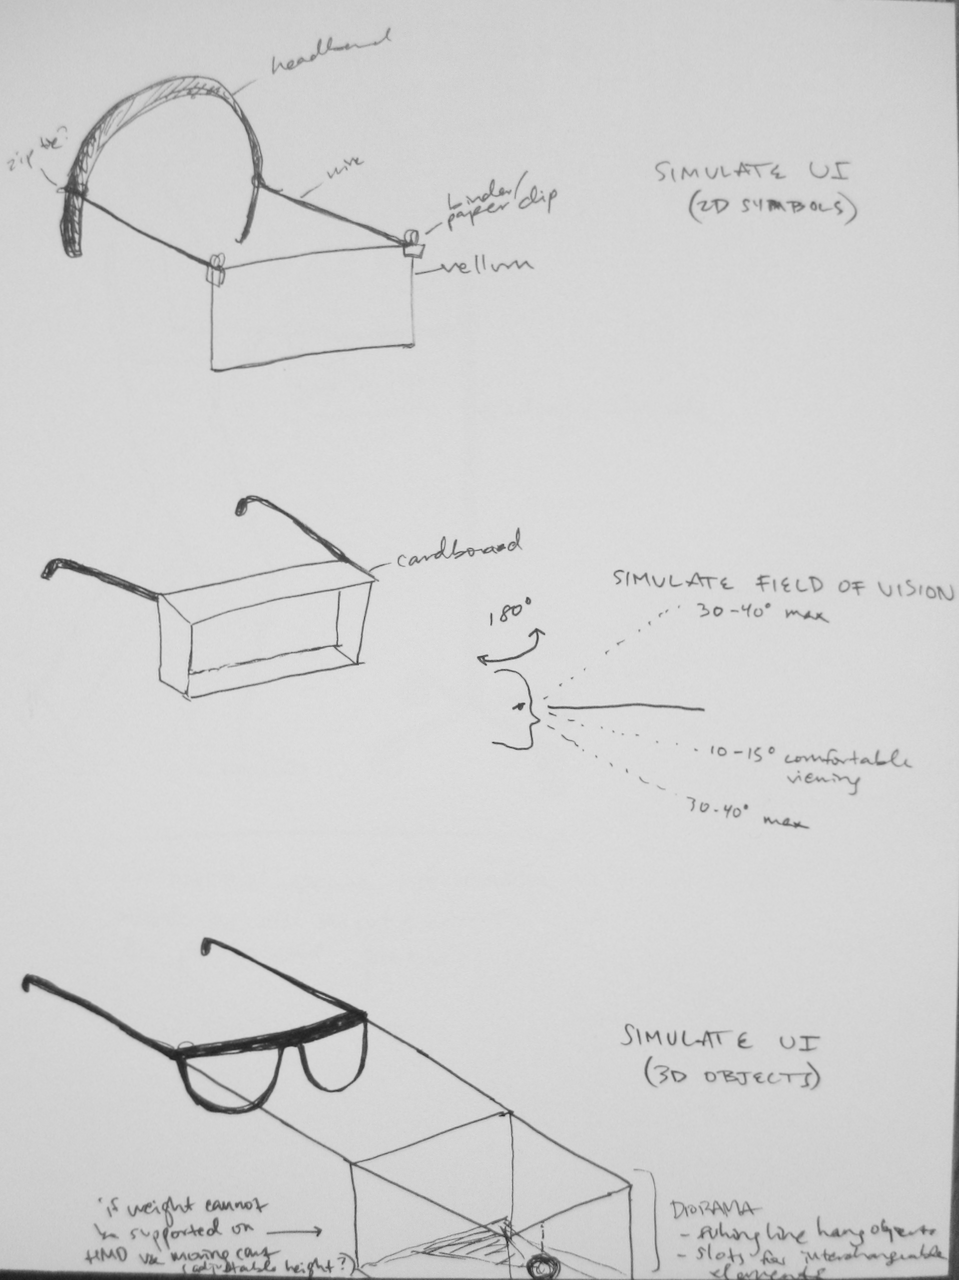 headband
zip tie?
wire
binder/
paper clip
vellum
SIMULATE UI
(2D SYMBOLS)
cardboard
SIMULATE FIELD OF VISION
30-40° max
180°
10-15° comfortable
viewing
30-40° max
SIMULATE UI
(3D OBJECTS)
if weight cannot
be supported on
HMD use moving cart
(adjustable height?)
DIORAMA
- fishing line hang objects
- slots for interchangeable
elements